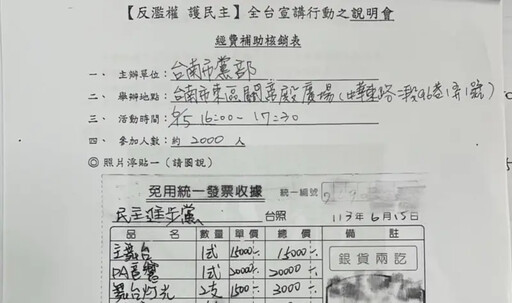 【反濫權 護民主】全台宣講行動之說明會
經費補助核銷表
一、 主辦單位：台南市黨部
二、 舉辦地點：台南市東區關帝殿廣場(中華東路二段96巷1弄1號)
三、 活動時間：6/15 16:00-17:30
四、 參加人數：約 2000 人
◎ 照片浮貼一（請圖說）
免用統一發票收據 統一編號
民主進步黨 台照 113年6月15日
品名 數量 單價 總價 備註
主舞台 1式 15000/. 15000/.
PA音響 1式 20000/. 20000/.
舞台灯光 2支 1500/. 3000/.
銀貨兩訖